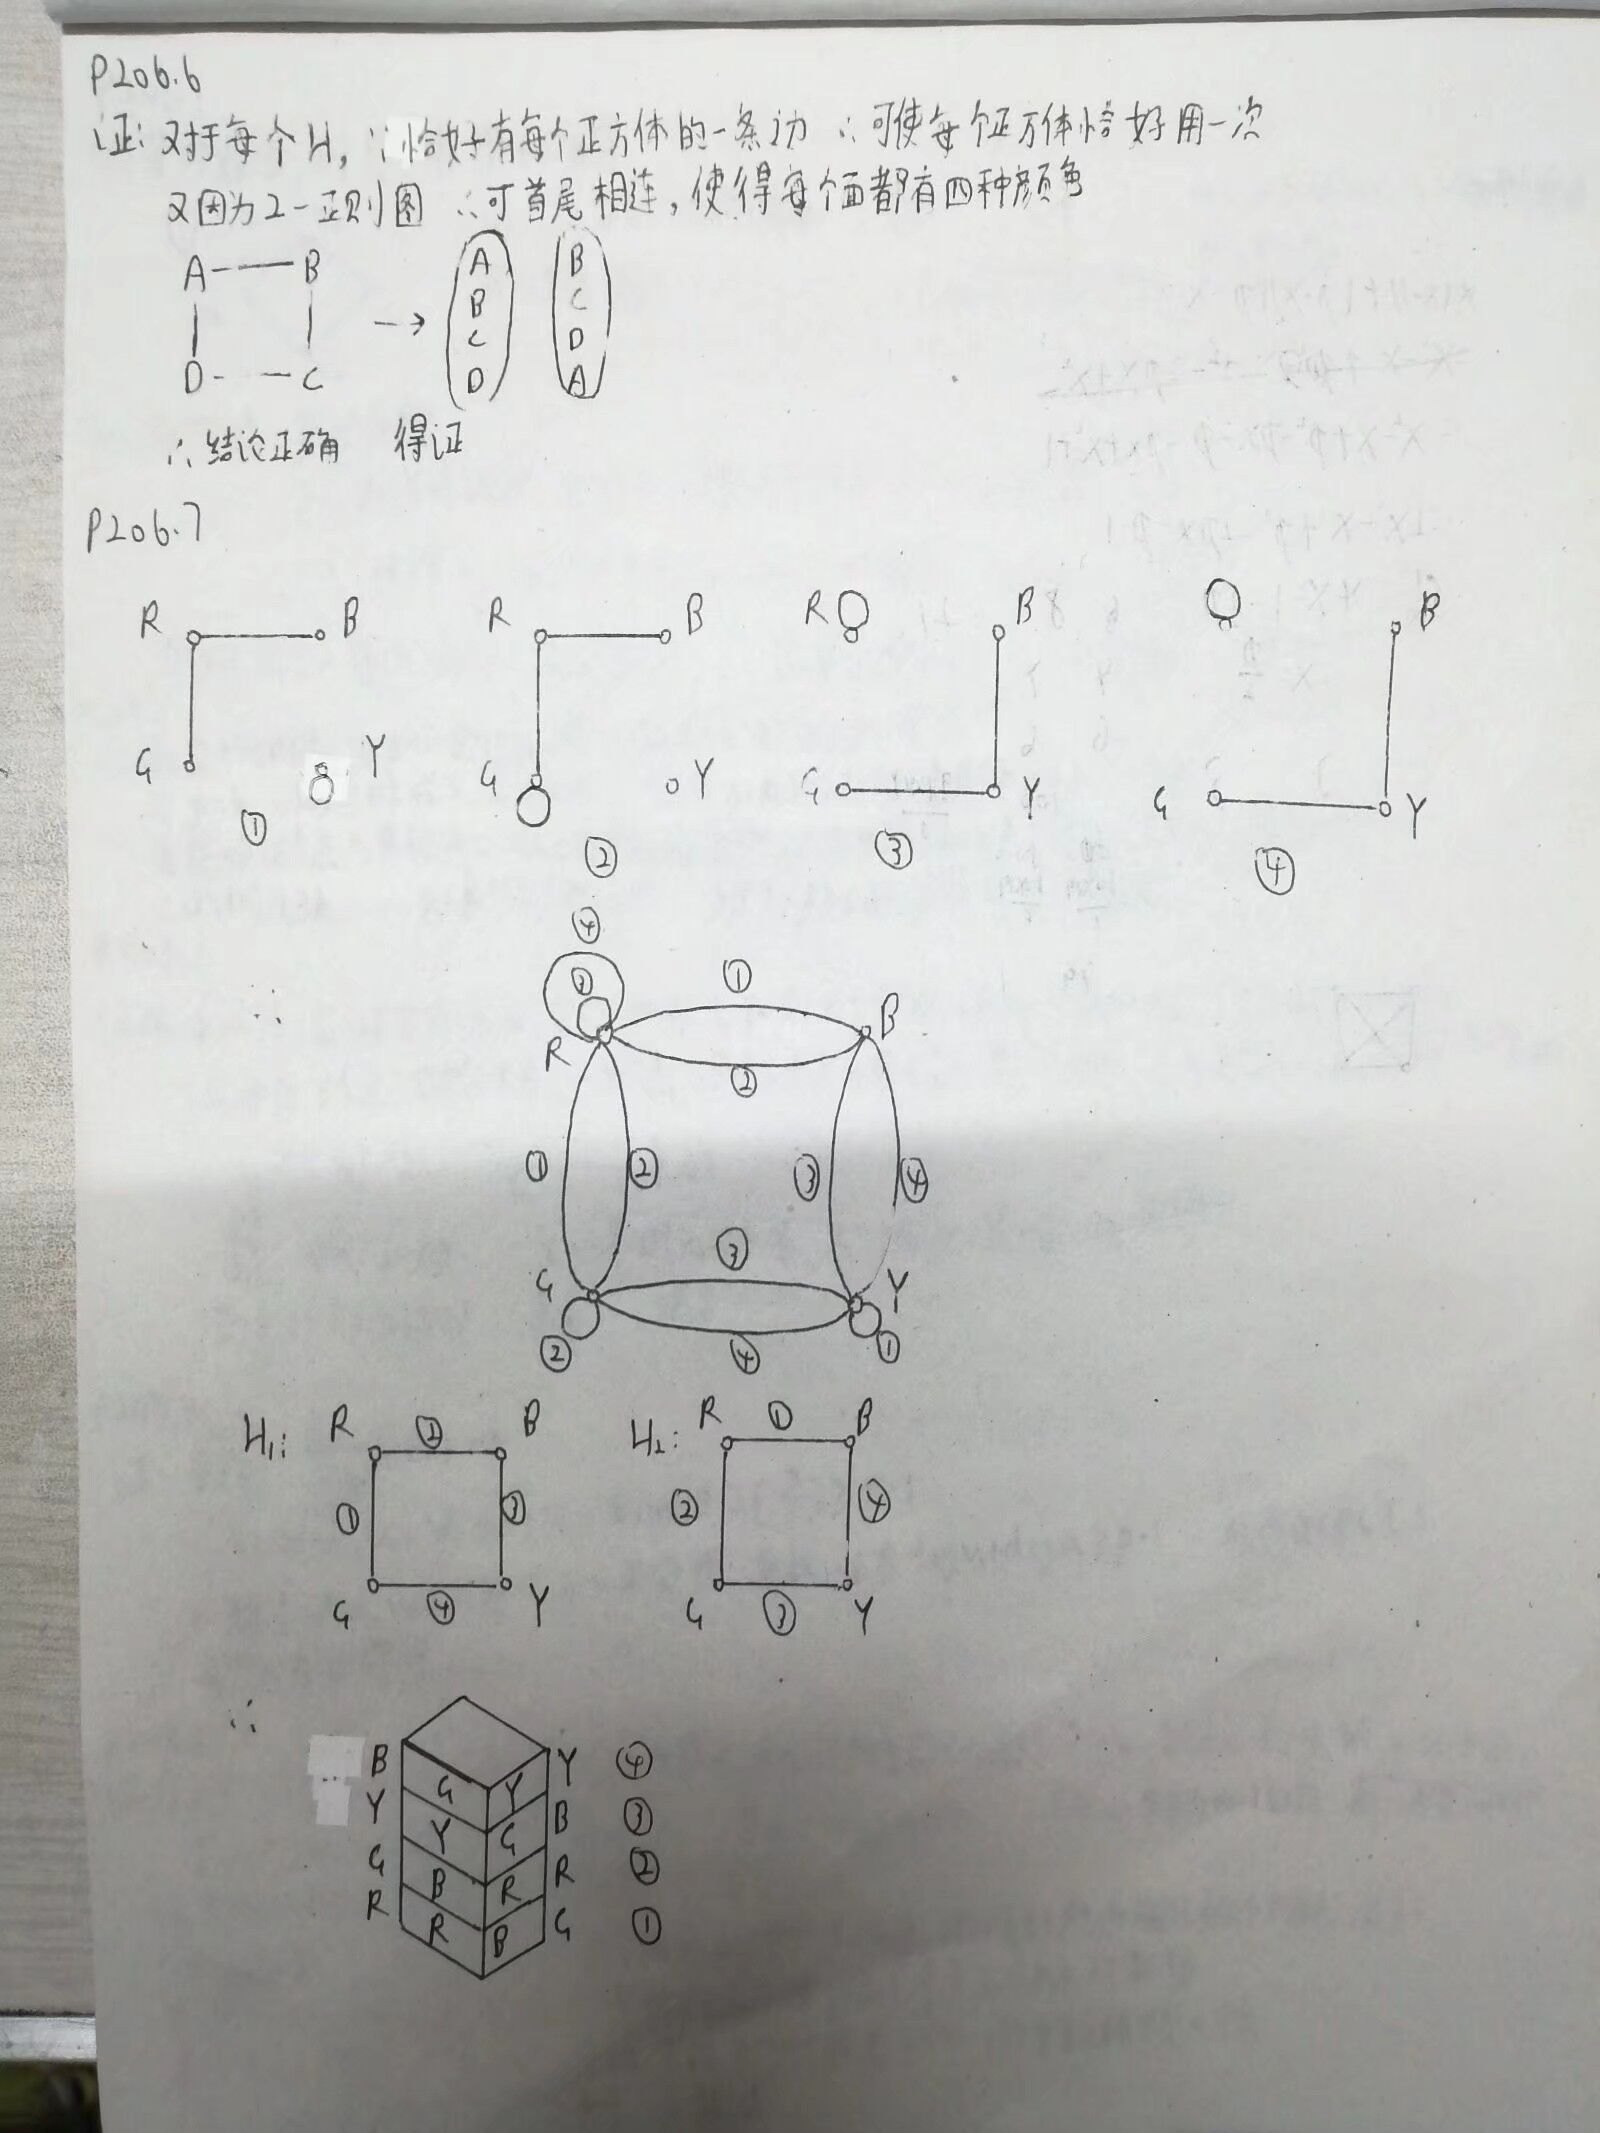 P206.6
证: 对于每个H, ∵恰好有每个正方体的一条边 ∴可使每个正方体恰好用一次
又因为2-正则图 ∴可首尾相连,使得每个面都有四种颜色
A B
D C
→
A
B
C
D
B
C
D
A
∴结论正确 得证
P206.7
R B
G Y
①
R B
G Y
②
R B
G Y
③
B
G Y
④
∴
④
③ ①
R B
②
① ② ③ ④
③
G Y
② ④ ①
H₁: R ② B
① ③
G ④ Y
H₂: R ① B
② ④
G ③ Y
∴
B G Y Y ④
Y Y G B ③
G B R R ②
R R B G ①